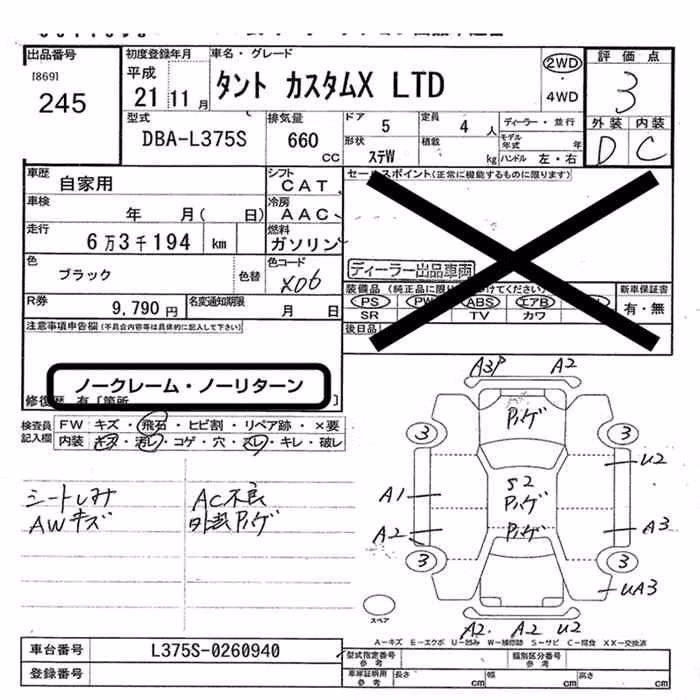 出品番号
[869]
245
初度登録年月
平成
21 11 月
車名・グレード
タント カスタムX LTD
2WD
・
4WD
評価点
3
外装 内装
D C
型式
DBA-L375S
排気量
660 CC
ドア 5
定員 4 人
形状 ステW
積載 kg
ディーラー・並行
モデル年式 年
ハンドル 左・右
車歴
自家用
シフト
CAT
車検
年 月( 日)
冷房
AAC
走行
6万3千194 km
燃料
ガソリン
色
ブラック
色替
色コード
X06
R券
9,790 円
名変通知期限
月 日
セールスポイント(正常に機能するものに限ります)
ディーラー出品車両
装備品 (純正品に限り
けてください)
PS PW ABS エアB
SR TV カワ
新車保証書
有・無
後日品
注意事項申告欄(不具合内容等は具体的に記入して下さい)
ノークレーム・ノーリターン
修復歴 有〔箇所 〕
検査員記入欄
FW キズ・飛石・ヒビ割・リペア跡・×要
内装 キズ・汚レ・コゲ・穴・スレ・キレ・破レ
シートしみ
AWキズ
AC不良
外装ハゲ
A3P A2
ハゲ
3 3
U2
S2
ハゲ
A1
ハゲ
A2 A3
3 3
UA3
スペア
A2 A2 U2
A－キズ E－エクボ U－凹み W－補修跡 S－サビ C－腐食 XX－交換済
車台番号
L375S-0260940
登録番号
型式指定番号
参考
類別区分番号
参考
車庫証明用
参考
長さ cm
幅 cm
高さ cm